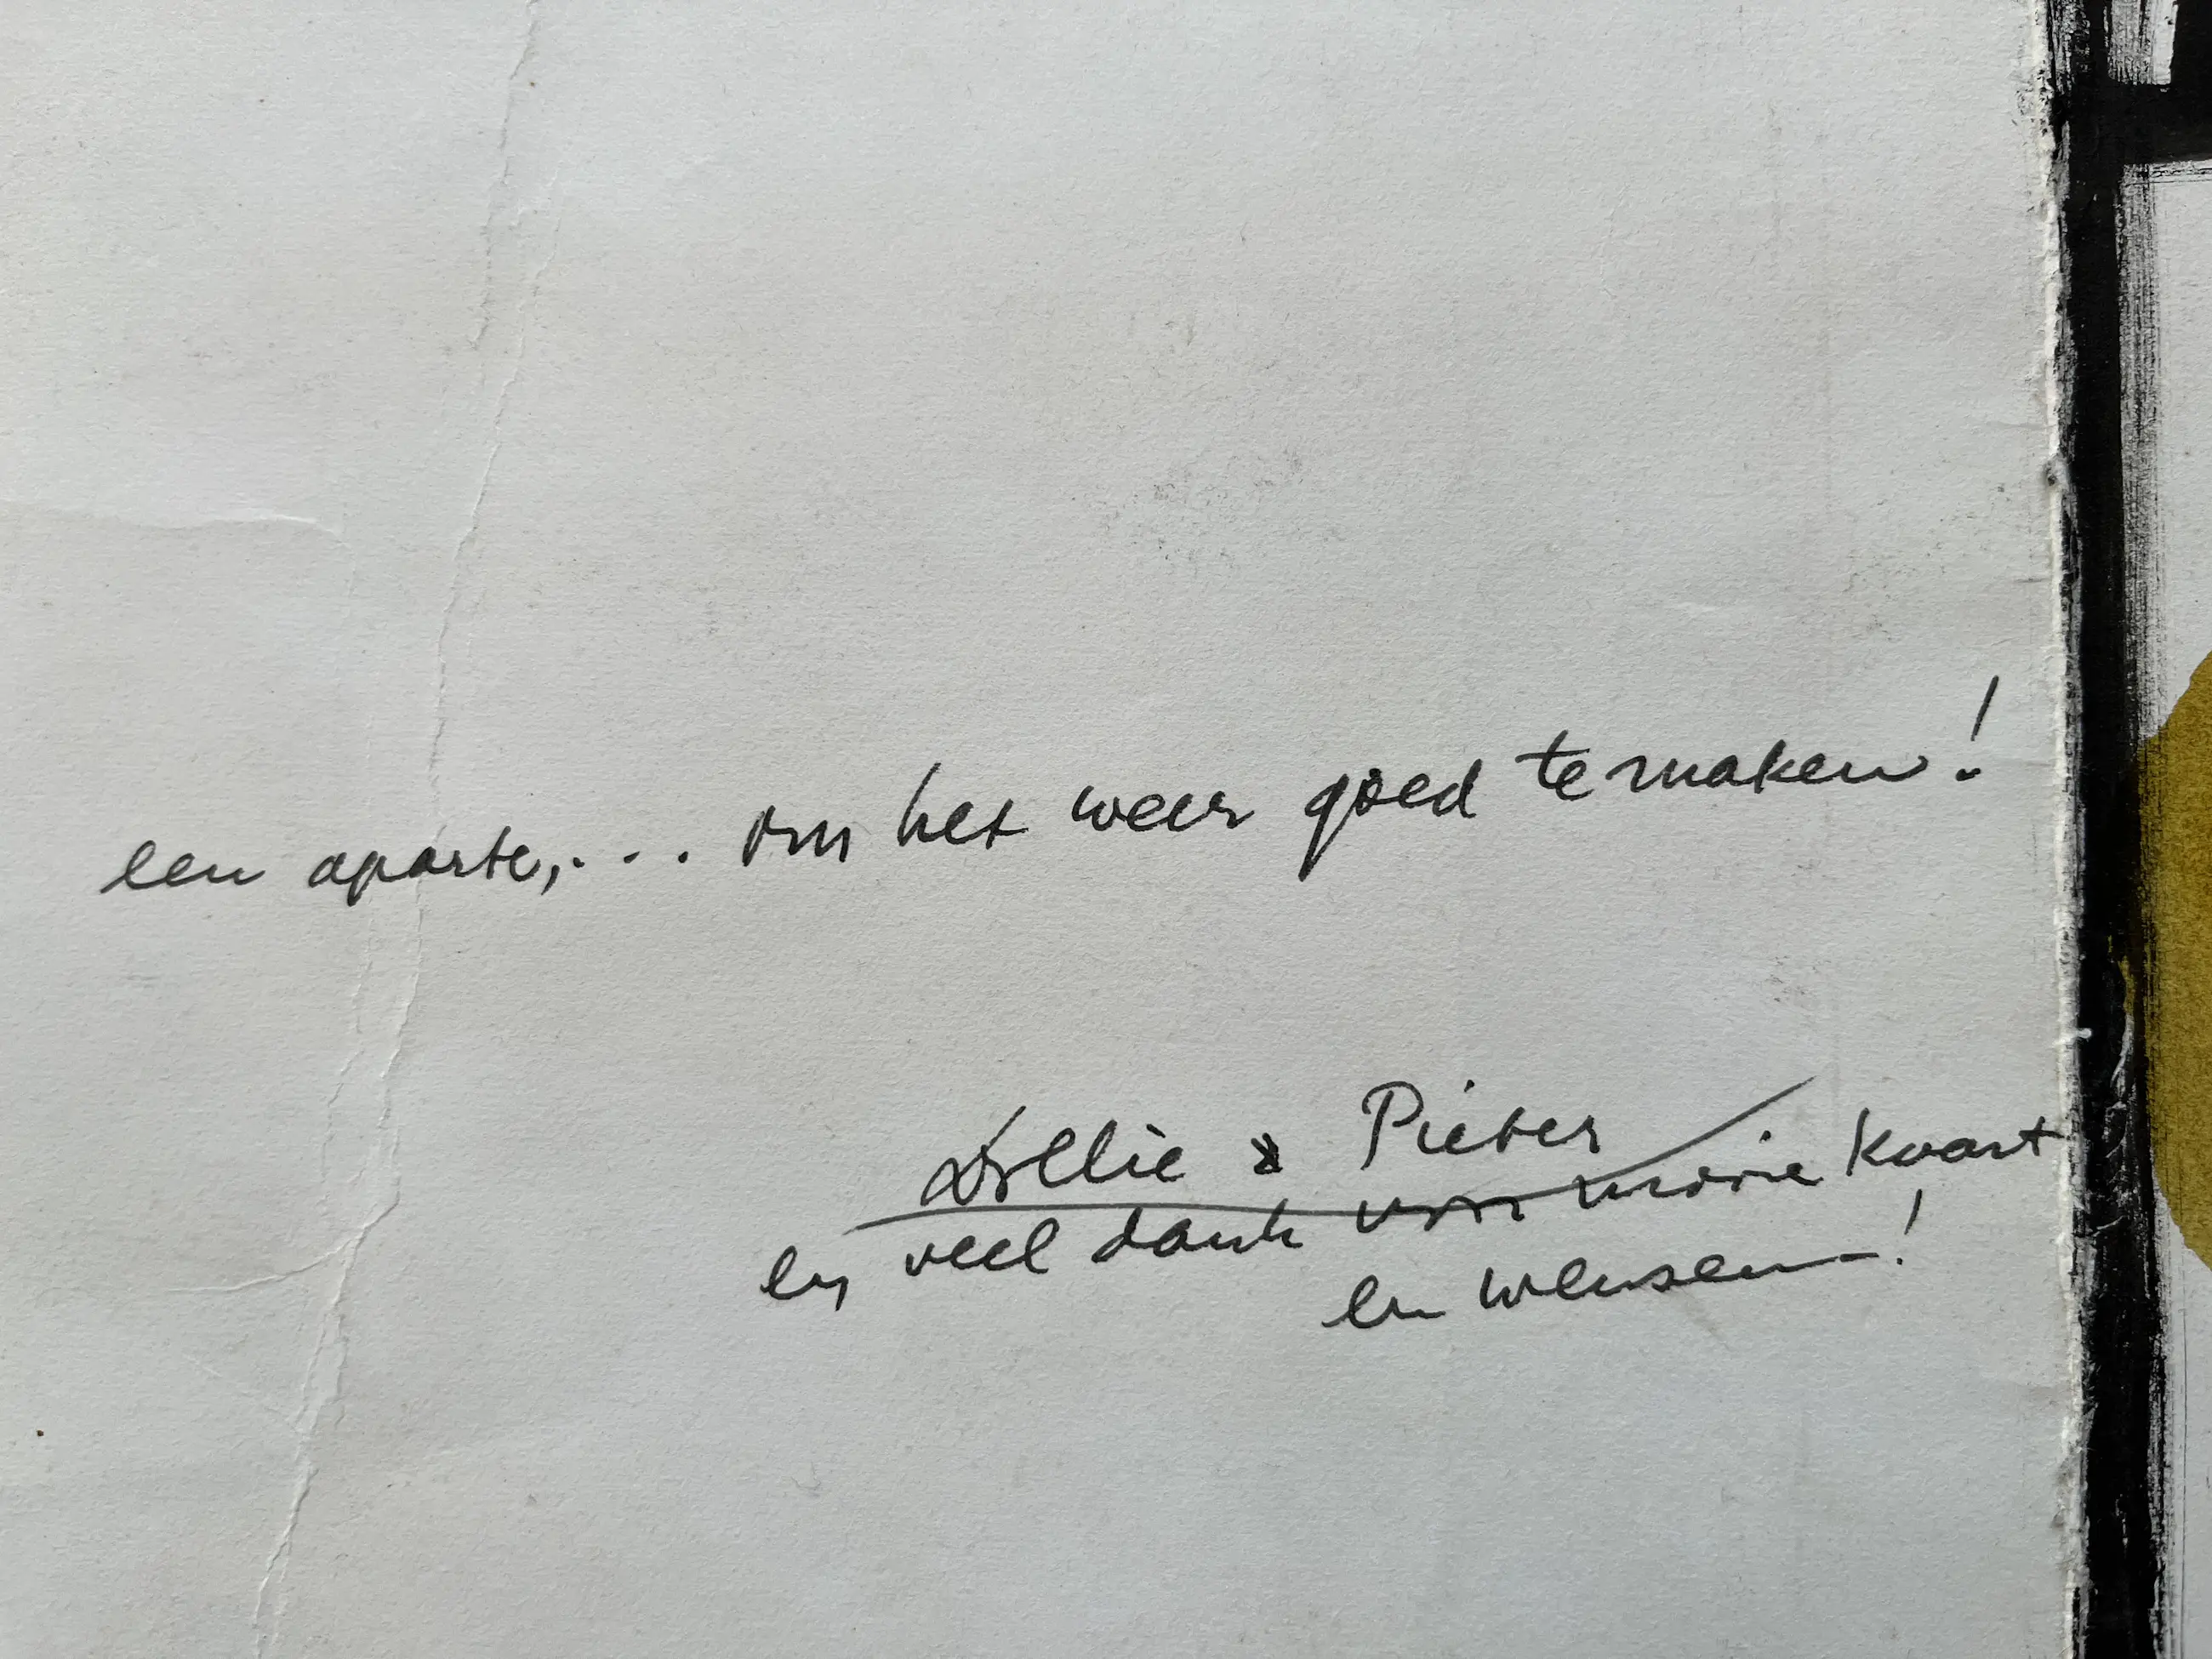 een aparte,... om het weer goed te maken!
Dollie & Pieter
en veel dank voor mooie kaart
en wensen!